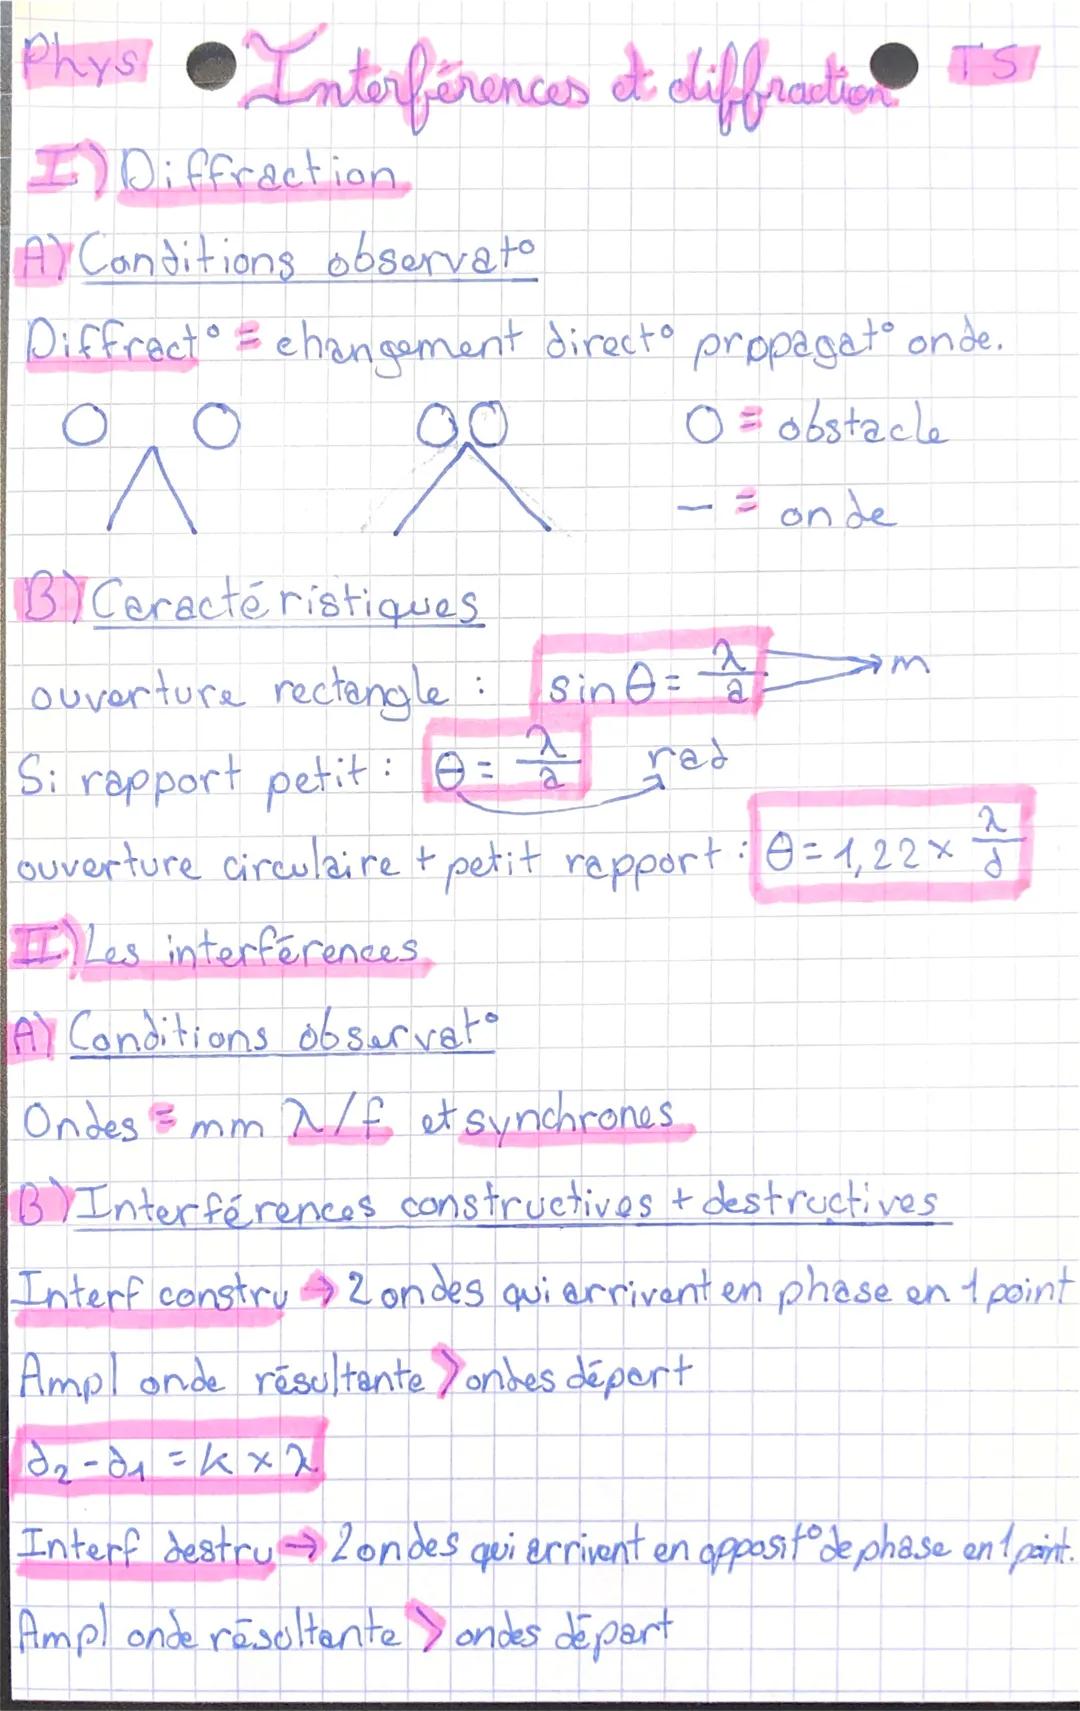 Phys Interférences et diffraction TS
I) Diffraction
A) Conditions observat°
Diffract° = changement direct° propagat° onde.
O = obstacle
— = onde
B) Caractéristiques
ouverture rectangle : sin θ = λ/a → m
Si rapport petit : θ = λ/a rad
ouverture circulaire + petit rapport : θ = 1,22 × λ/d
II) Les interférences
A) Conditions observat°
Ondes = mm λ/f et synchrones
B) Interférences constructives + destructives
Interf constru → 2 ondes qui arrivent en phase en 1 point
Ampl onde résultante > ondes départ
d₂ - d₁ = k × λ
Interf destru → 2 ondes qui arrivent en opposit° de phase en 1 point.
Ampl onde résultante > ondes départ